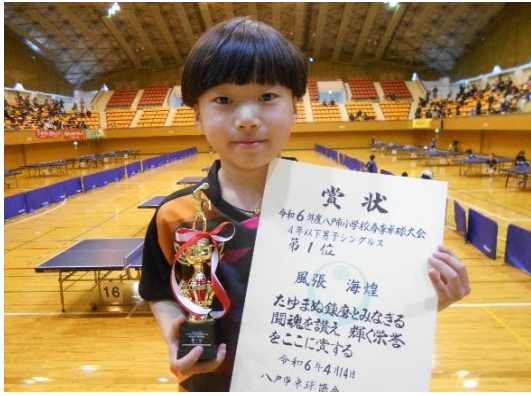 賞状
令和6年度八戸市小学校春季卓球大会
4年以下男子シングルス
第1位
風張 海煌
たゆまぬ錬磨とみなぎる
闘魂を讃え 輝く栄誉
をここに賞する
令和6年4月14日
八戸市卓球協会
16